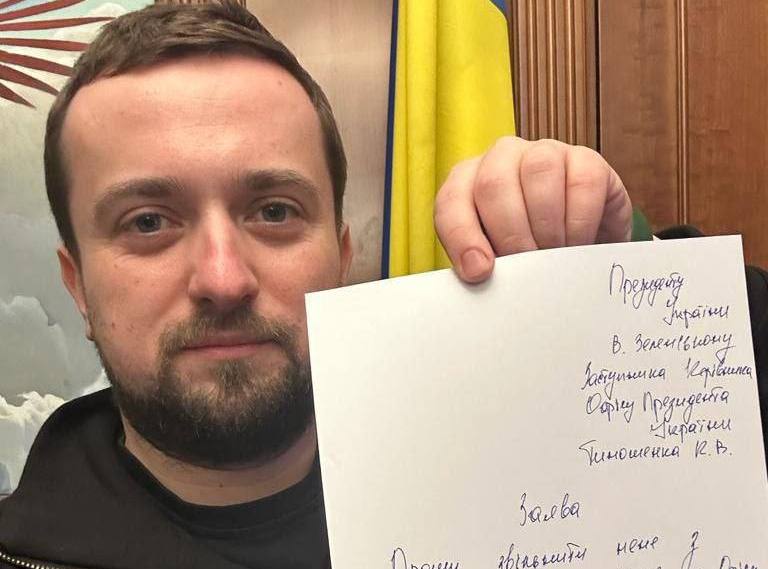 Президенту
України
В. Зеленському
Заступника Керівника
Офісу Президента
України
Тимошенка К.В.
Заява
Прошу звільнити мене з
Офісу